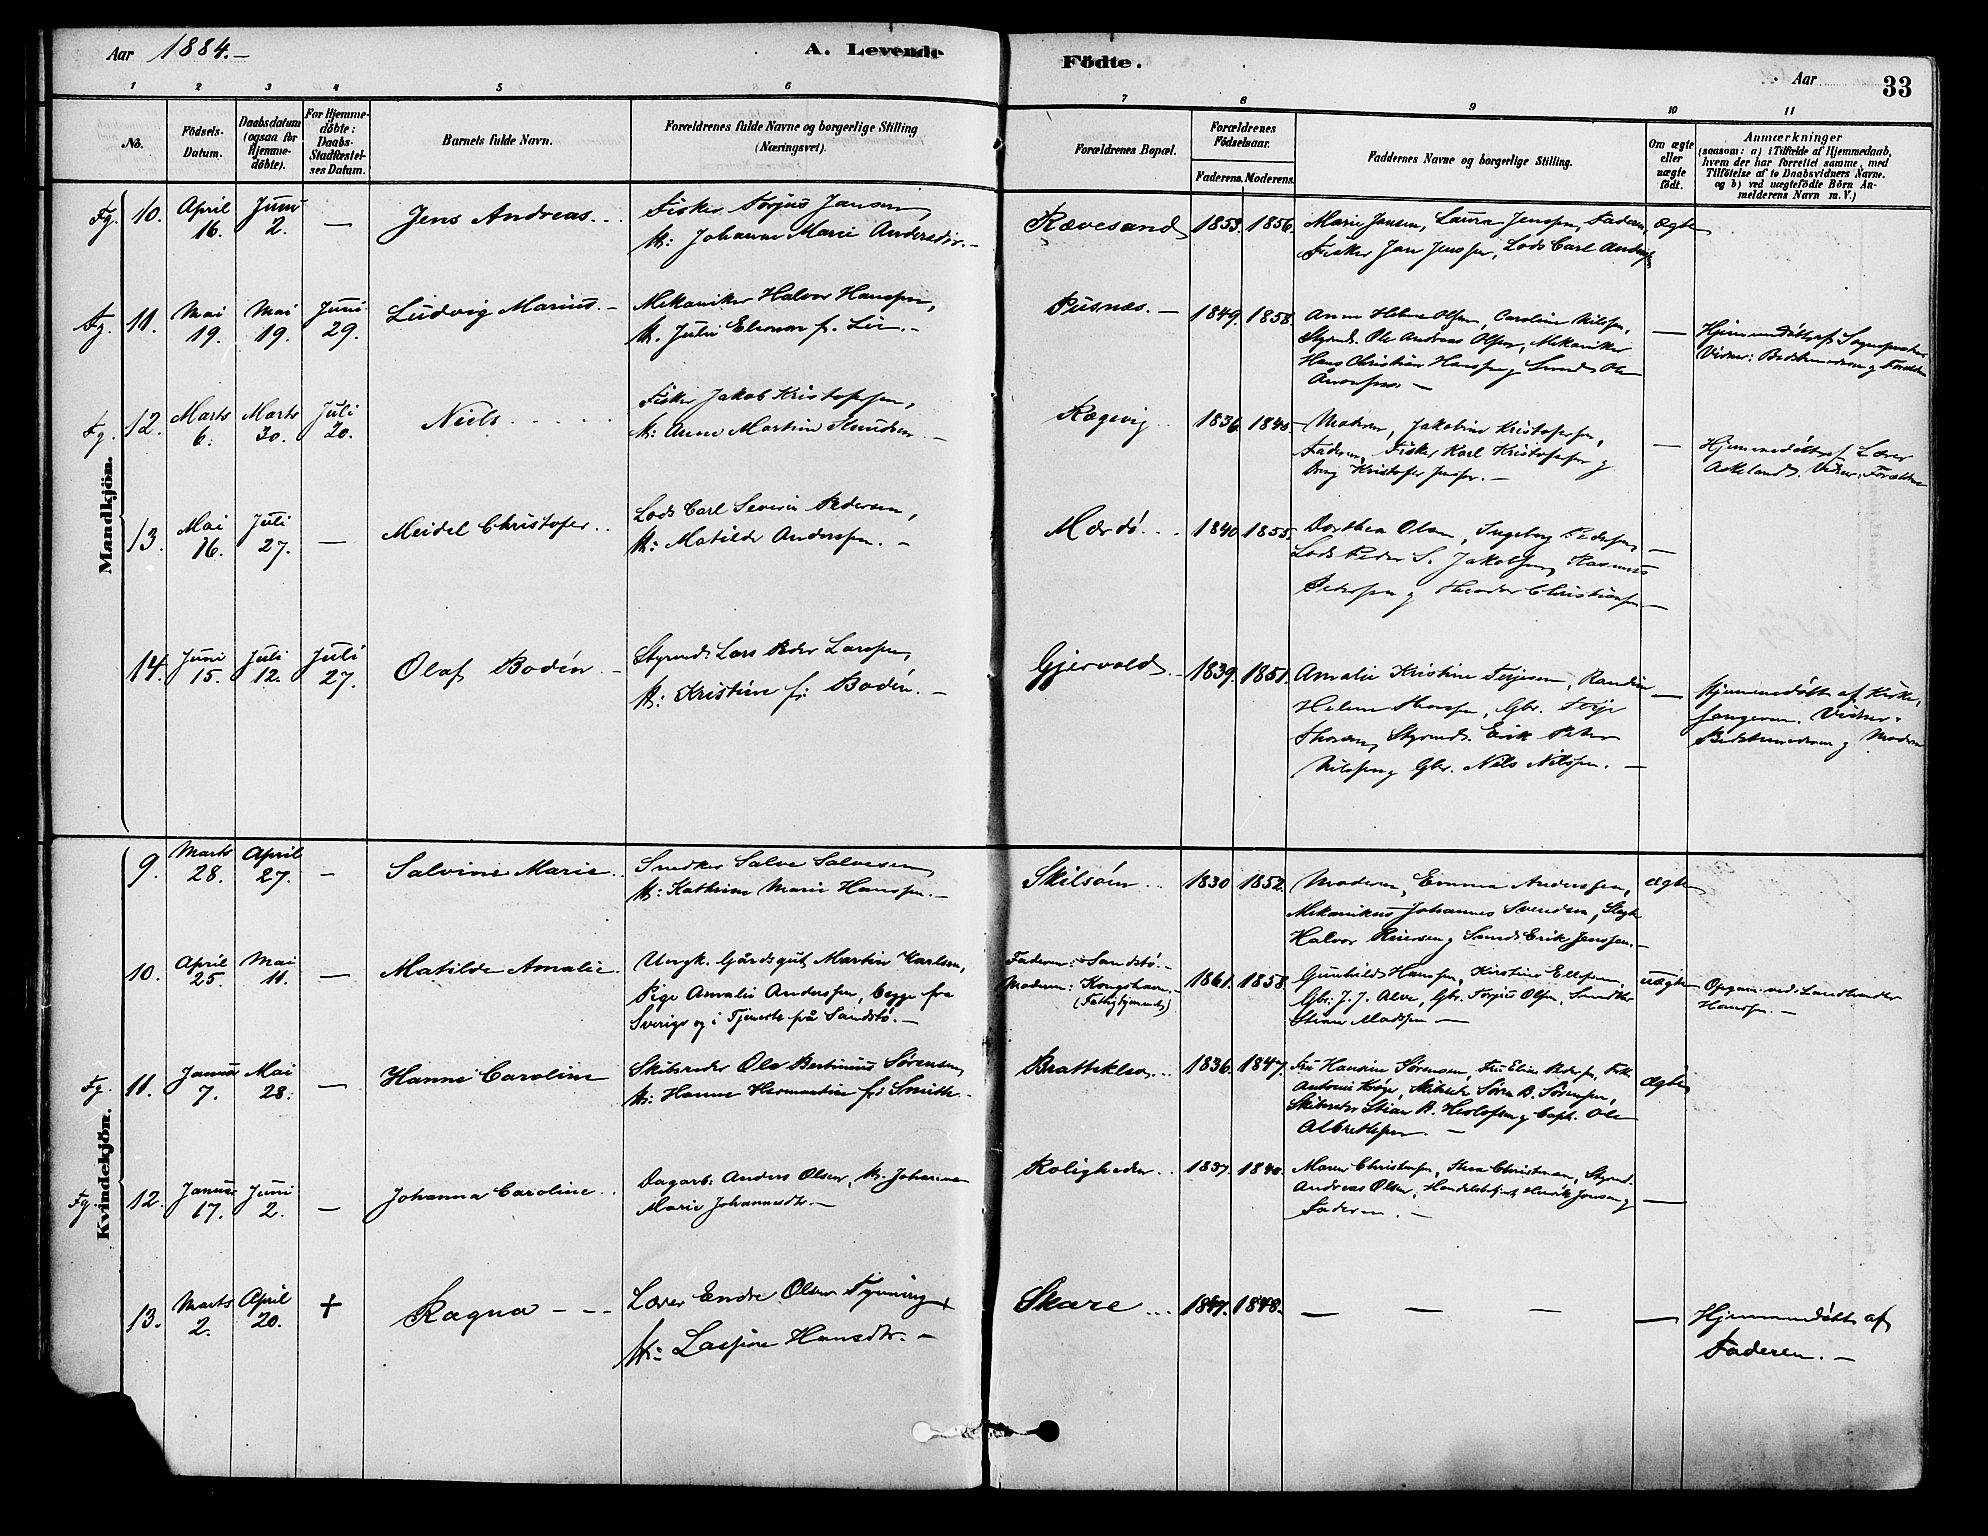 Aar 1884.—
A. Levende Födte.
Aar 33
1 2 3 4 5 6 7 8 9 10 11
No.
Födsels-Datum.
Daabsdatum (ogsaa for Hjemme-döbte).
For Hjemme-döbte: Daabs-Stadfæstelses Datum.
Barnets fulde Navn.
Forældrenes fulde Navne og borgerlige Stilling (Næringsvei).
Forældrenes Bopæl.
Forældrenes Födselsaar.
Faderens. Moderens.
Faddernes Navne og borgerlige Stilling.
Om ægte eller uægte födt.
Anmærkninger
(saasom: a) i Tilfælde af Hjemmedaab,
hvem der har forrettet samme, med
Tilföielse af to Daabsvidners Navne.
og b) ved uægtefödte Börn An-
melderens Navn m. V.)
Mandkjön.
Fg. 10. April 16. Juni 2. — Jens Andreas
Fisker Torjus Jansen,
H: Johanne Marie Andersdtr. —
Rævesand 1853. 1856.
Marie Jansen, Laura Jenssen, Faderen,
Fisker Jan Jenssen, Lods Carl
ægte
Fg. 11. Mai 19. Mai 19. Juni 29. Ludvig Marius. —
Mekaniker Halvor Hanssen,
H. Julie Eleonore f. Lie. —
Pusnæs. — 1849. 1858.
Anne Helene Olsen, Caroline Nilssen,
Styrmd. Ole Andreas Olsen, Mekaniker
Hans Christian Hanssen, Smed Ole
—
Hjemmedøbt af Sognepresten
Vidner: Bedstemoderen & Forældrene
Fg. 12. Marts 6. Marts 30. Juli 20. Niels
Fisker Jakob Kristofersen,
H: Anne Martine Knudsen. —
Rægevig 1836. 1840.
Moderen, Jakobine Kristofersen,
Faderen, Fisker Karl Kristofersen &
Dreng Kristofer Jenssen. —
—
Hjemmedøbt af Lærer
Askeland. Vidner: Forældrene
13. Mai 16. Juli 27. — Meidel Christofer
Lods Carl Severin Pedersen,
H: Matilde Anderssen. —
Mærdø 1840. 1855.
Dorthea Olsen, Ingeborg Pedersen,
Lods Peder S. Jakobsen, Rasmus
Pedersen & Theodor Christiansen
—
14. Juni 15. Juli 12. Juli 27. Olaf Bodén. —
Styrmd. Lars Peder Larssen,
H: Kristine f: Bodén. —
Gjervold 1839. 1851.
Amalie Kristine Terjesen, Randine
Helene Gbr. Terje
Styrmd. Erik Peter
Nilssen, Gbr. Nils Nilssen. —
—
Hjemmedøbt af Kirke-
sangeren. Vidner:
Bedstemoderen & Moderen
Kvindekjön.
9. Marts 28. April 27. — Salvine Marie
Snedker Salve Salvesen,
H: Kathrine Marie Hanssen. —
Skilsøen 1830 1852.
Moderen, Emma Anderssen,
Mekanikus Johannes Svendsen,
Halvor Smed Erik Jenssen. —
ægte
10. April 25. Mai 11. — Matilde Amalie
Ungk. Gårdsgut Martin Karlsen,
Pige Amalie Anderssen, begge fra
Sverige og i Tjeneste på Sandstø. —
Faderen: Sandstø. —
Moderen: Kongshavn. —
1861. 1858.
Gunhild Hanssen, Kirstine Ellefsen,
Gbr. J. J. Alve, Gbr. Torjus Olsen, Snedker
Stian Madssen —
uægte
Opgav. ved: Landhandler
Hanssen. —
Fg. 11. Januar 7. Mai 28. — Hanne Caroline
Skibsreder Ole Bertinius Sørensen,
H: Hanne Hermantine f: Smith. —
Bratteklev 1836. 1847.
Fru Hansine Sørensen, Fru Elise Pedersen, Frk.
Antonie Skibsreder Sören B. Sørensen,
Skibsreder Stian B. Herlofson & Capt. Ole
Albrethsen. —
ægte
Fg. 12. Januar 17. Juni 2. — Johanna Caroline
Dagarb. Anders Olsen, H. Johanne
Marie Johannesdtr. —
Roligheden 1837. 1840.
Maren Christensen, Christensen, Styrmd.
Andreas Olsen, Henrik Jonsen &
Faderen. —
—
13. Marts 2. April 20. + Ragna — —
Lærer Endre Olsen
H: Hansdtr. —
Skare 1847. 1848.
— — —
—
Hjemmedøbt af
Faderen. —